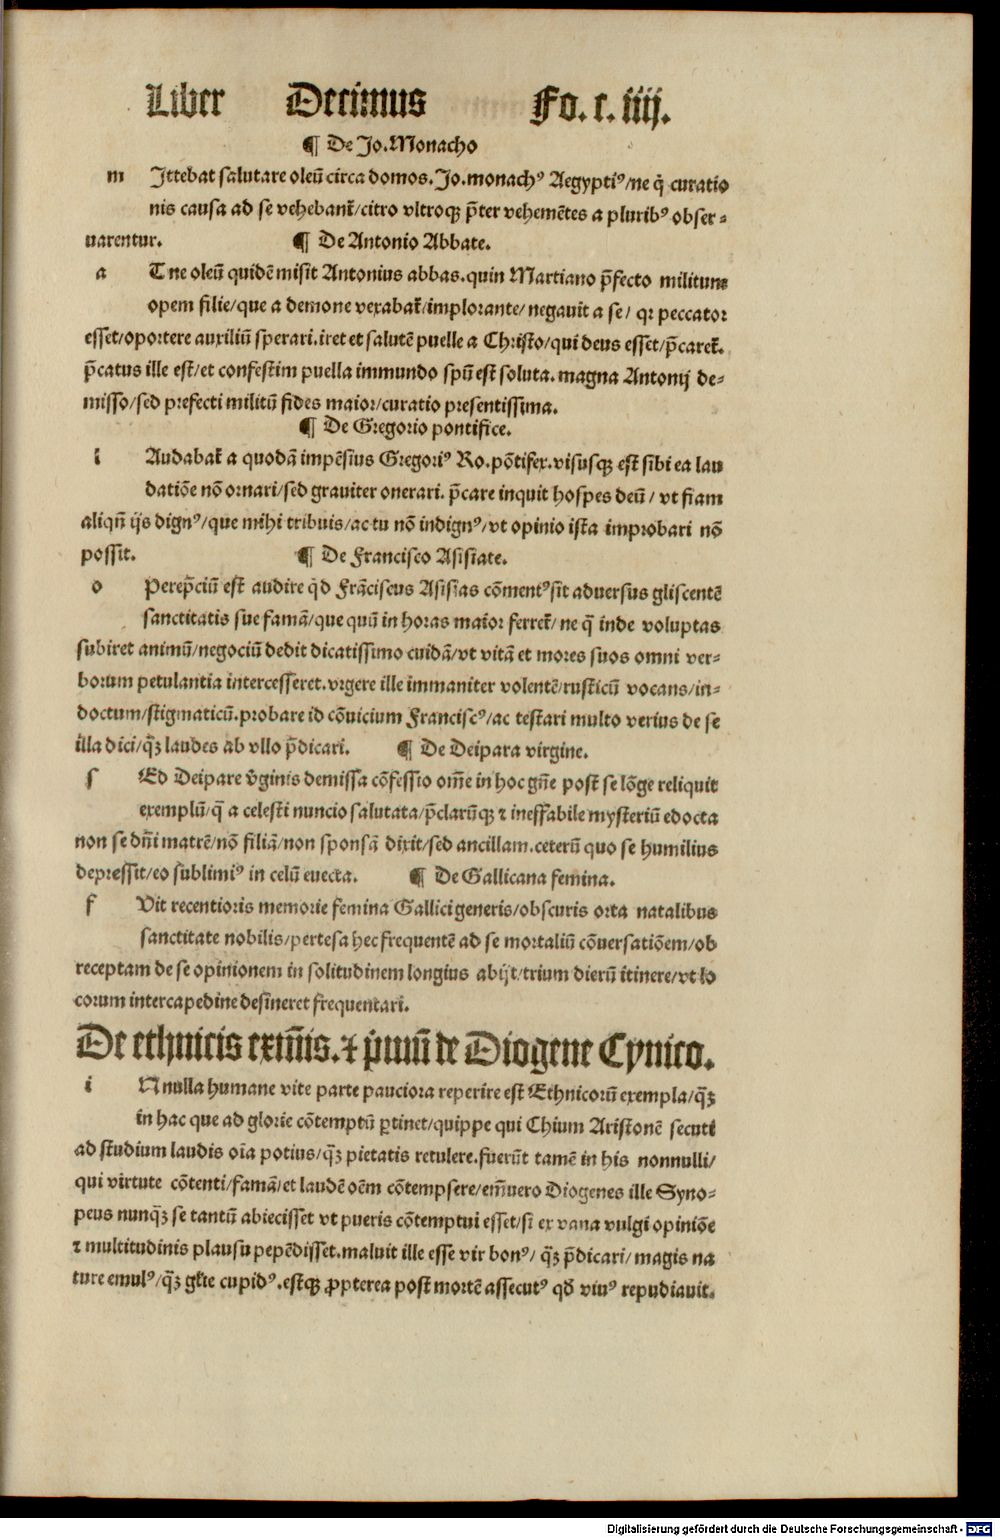 Liber Decimus Fo. c. iiij.
¶ De Jo. Monacho
m Jttebat salutare oleū circa domos. Jo. monachꝰ Aegyptiꝰ/ne q̄ curatio
nis causa ad se vehebant᷑/citro vltroqꝫ p̄ter vehemētes a pluribꝰ obser⸗
uarentur. ¶ De Antonio Abbate.
a T ne oleū quidē misit Antonius abbas. quin Martiano p̄fecto militum
opem filie/que a demone vexabat᷑/implorante/negauit a se/ qꝛ peccator
esset/oportere auxiliū sperari. iret et salutē puelle a Christo/qui deus esset/p̄caret᷑.
p̄catus ille est/et confestim puella immundo spū est soluta. magna Antonij de⸗
misso/sed prefecti militū fides maior/curatio presentissima.
¶ De Gregorio pontifice.
l Audabat᷑ a quodā impēsius Gregoriꝰ Ro. pōtifex. visusqꝫ est sibi ea lau
datiōe nō ornari/sed grauiter onerari. p̄care inquit hospes deū/ vt fiam
aliqn̄ ijs dignꝰ/que mihi tribuis/ac tu nō indignꝰ/vt opinio ista improbari nō
possit. ¶ De Francisco Asisiate.
o Perep̄ciū est audire q̄d Frāciscus Asisias cōmentꝰsit aduersus gliscentē
sanctitatis sue famā/que quū in horas maior ferret᷑/ne q̄ inde voluptas
subiret animū/negociū dedit dicatissimo cuidā/vt vitā et mores suos omni ver⸗
borum petulantia intercesseret. vrgere ille immaniter volentē/rusticū vocans/in⸗
doctum/stigmaticū. probare id cōuicium Franciscꝰ/ac testari multo verius de se
illa dici/q̄ꝫ laudes ab vllo p̄dicari. ¶ De Deipara virgine.
s Ed Deipare v̄ginis demissa cōfessio om̄e in hoc gn̄e post se lōge reliquit
exemplū/q̄ a celesti nuncio salutata/p̄clarūqꝫ ⁊ ineffabile mysteriū edocta
non se dn̄i matrē/nō filiā/non sponsā dixit/sed ancillam. ceterū quo se humilius
depressit/eo sublimiꝰ in celū euecta. ¶ De Gallicana femina.
f Vit recentioris memorie femina Gallici generis/obscuris orta natalibus
sanctitate nobilis/pertesa hec frequentē ad se mortaliū cōuersatiōem/ob
receptam de se opinionem in solitudinem longius abijt/trium dierū itinere/vt lo
corum intercapedine desineret frequentari.
De ethnicis eximīs. ⁊ p̄mū de Diogene Cynico.
i N nulla humane vite parte pauciora reperire est Ethnicorū exempla/q̄ꝫ
in hac que ad glorie cōtemptū ꝑtinet/quippe qui Chium Aristonē secuti
ad studium laudis oīa potius/q̄ꝫ pietatis retulere. fuerūt tamē in his nonnulli/
qui virtute cōtenti/famā/et laudē oēm cōtempsere/em̄uero Diogenes ille Syno⸗
peus nunqꝫ se tantū abiecisset vt pueris cōtemptui esset/si ex vana vulgi opiniōe
⁊ multitudinis plausu pepēdisset. maluit ille esse vir bonꝰ/ q̄ꝫ p̄dicari/magis na
ture emulꝰ/q̄ꝫ gl̄ie cupidꝰ. estqꝫ ꝓpterea post mortē assecutꝰ qd̄ viuꝰ repudiauit.
Digitalisierung gefördert durch die Deutsche Forschungsgemeinschaft - DFG